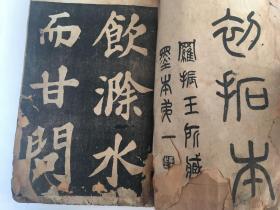 初拓本
羅振玉所藏
墨本弟一
飲滁水
而甘問